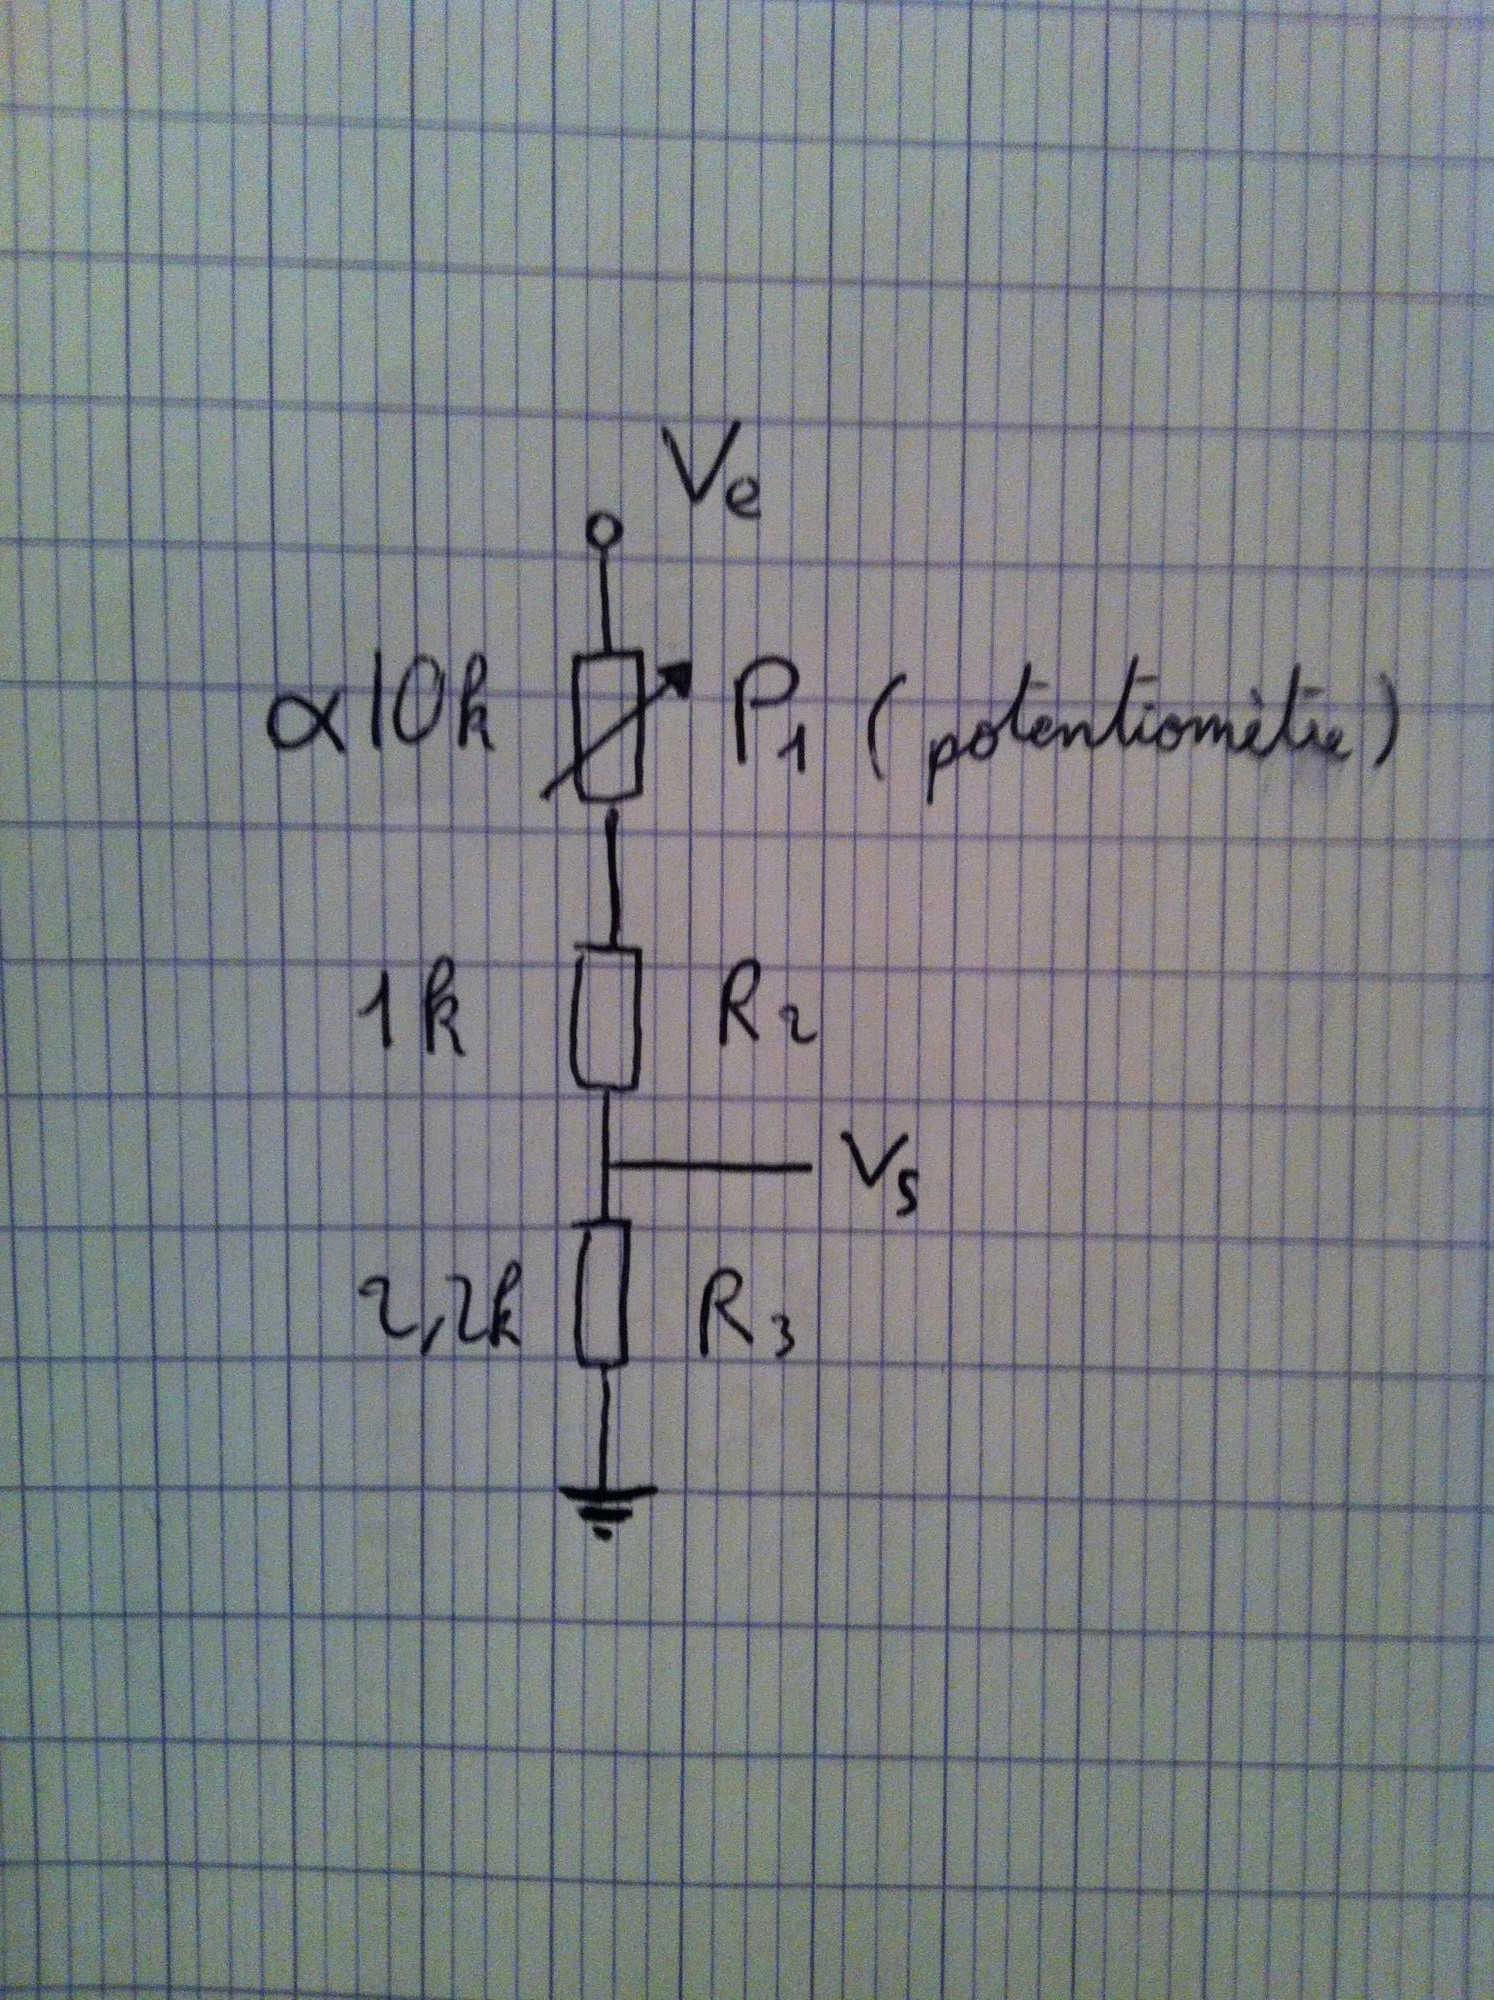 Ve
α10k P1 (potentiomètre)
1k R2
Vs
2,2k R3